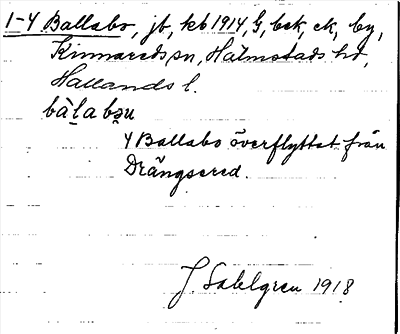 1-4 Ballabo, jb, kb 1914, G, bsk, ek, by,
Kinnareds sn, Halmstads hd,
Hallands l.
bàlabǝn
4 Ballabo överflyttat från
Drängsered.
J. Sahlgren 1918